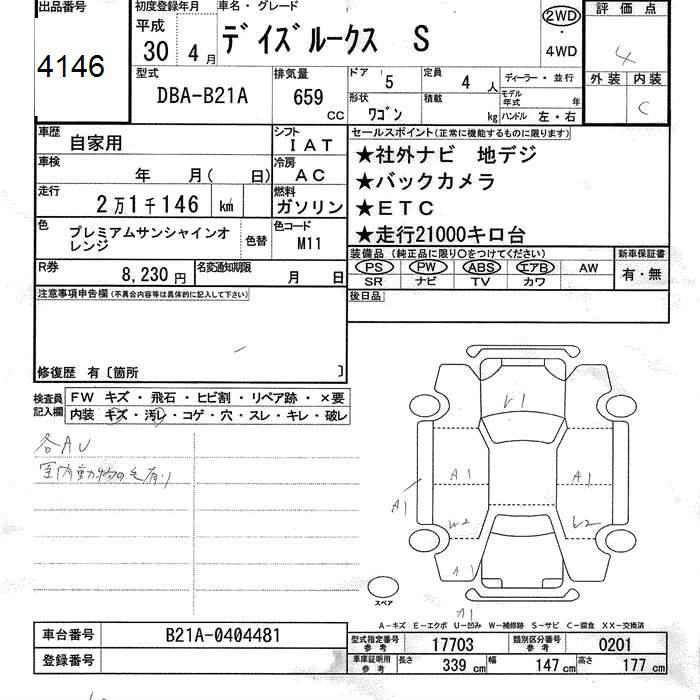 出品番号
4146
初度登録年月
平成
30 4 月
車名・グレード
デイズルークス S
2WD
・
4WD
評価点
4
外装 内装
C
型式
DBA-B21A
排気量
659 CC
ドア 5
定員 4 人
形状 ワゴン
積載 kg
ディーラー・並行
モデル年式 年
ハンドル 左・右
車歴 自家用
シフト IAT
車検 年 月( 日)
冷房 AC
走行 2万1千146 km
燃料 ガソリン
色 プレミアムサンシャインオレンジ
色替
色コード M11
R券 8,230円
名変通知期限 月 日
セールスポイント(正常に機能するものに限ります)
★社外ナビ 地デジ
★バックカメラ
★ETC
★走行21000キロ台
装備品 (純正品に限り○をつけてください)
PS PW ABS エアB AW
SR ナビ TV カワ
新車保証書
有・無
後日品
注意事項申告欄(不具合内容等は具体的に記入して下さい)
修復歴 有〔箇所 〕
検査員記入欄
FW キズ・飛石・ヒビ割・リペア跡・×要
内装 キズ・汚レ・コゲ・穴・スレ・キレ・破レ
各AU
室内動物の毛有り
U1
A1 A1
A1
W2 U2
A1
A1
スペア
A-キズ E-エクボ U-凹み W-補修跡 S-サビ C-腐食 XX-交換済
車台番号 B21A-0404481
登録番号
型式指定番号 参考 17703
類別区分番号 参考 0201
車庫証明用 参考
長さ 339 cm
幅 147 cm
高さ 177 cm